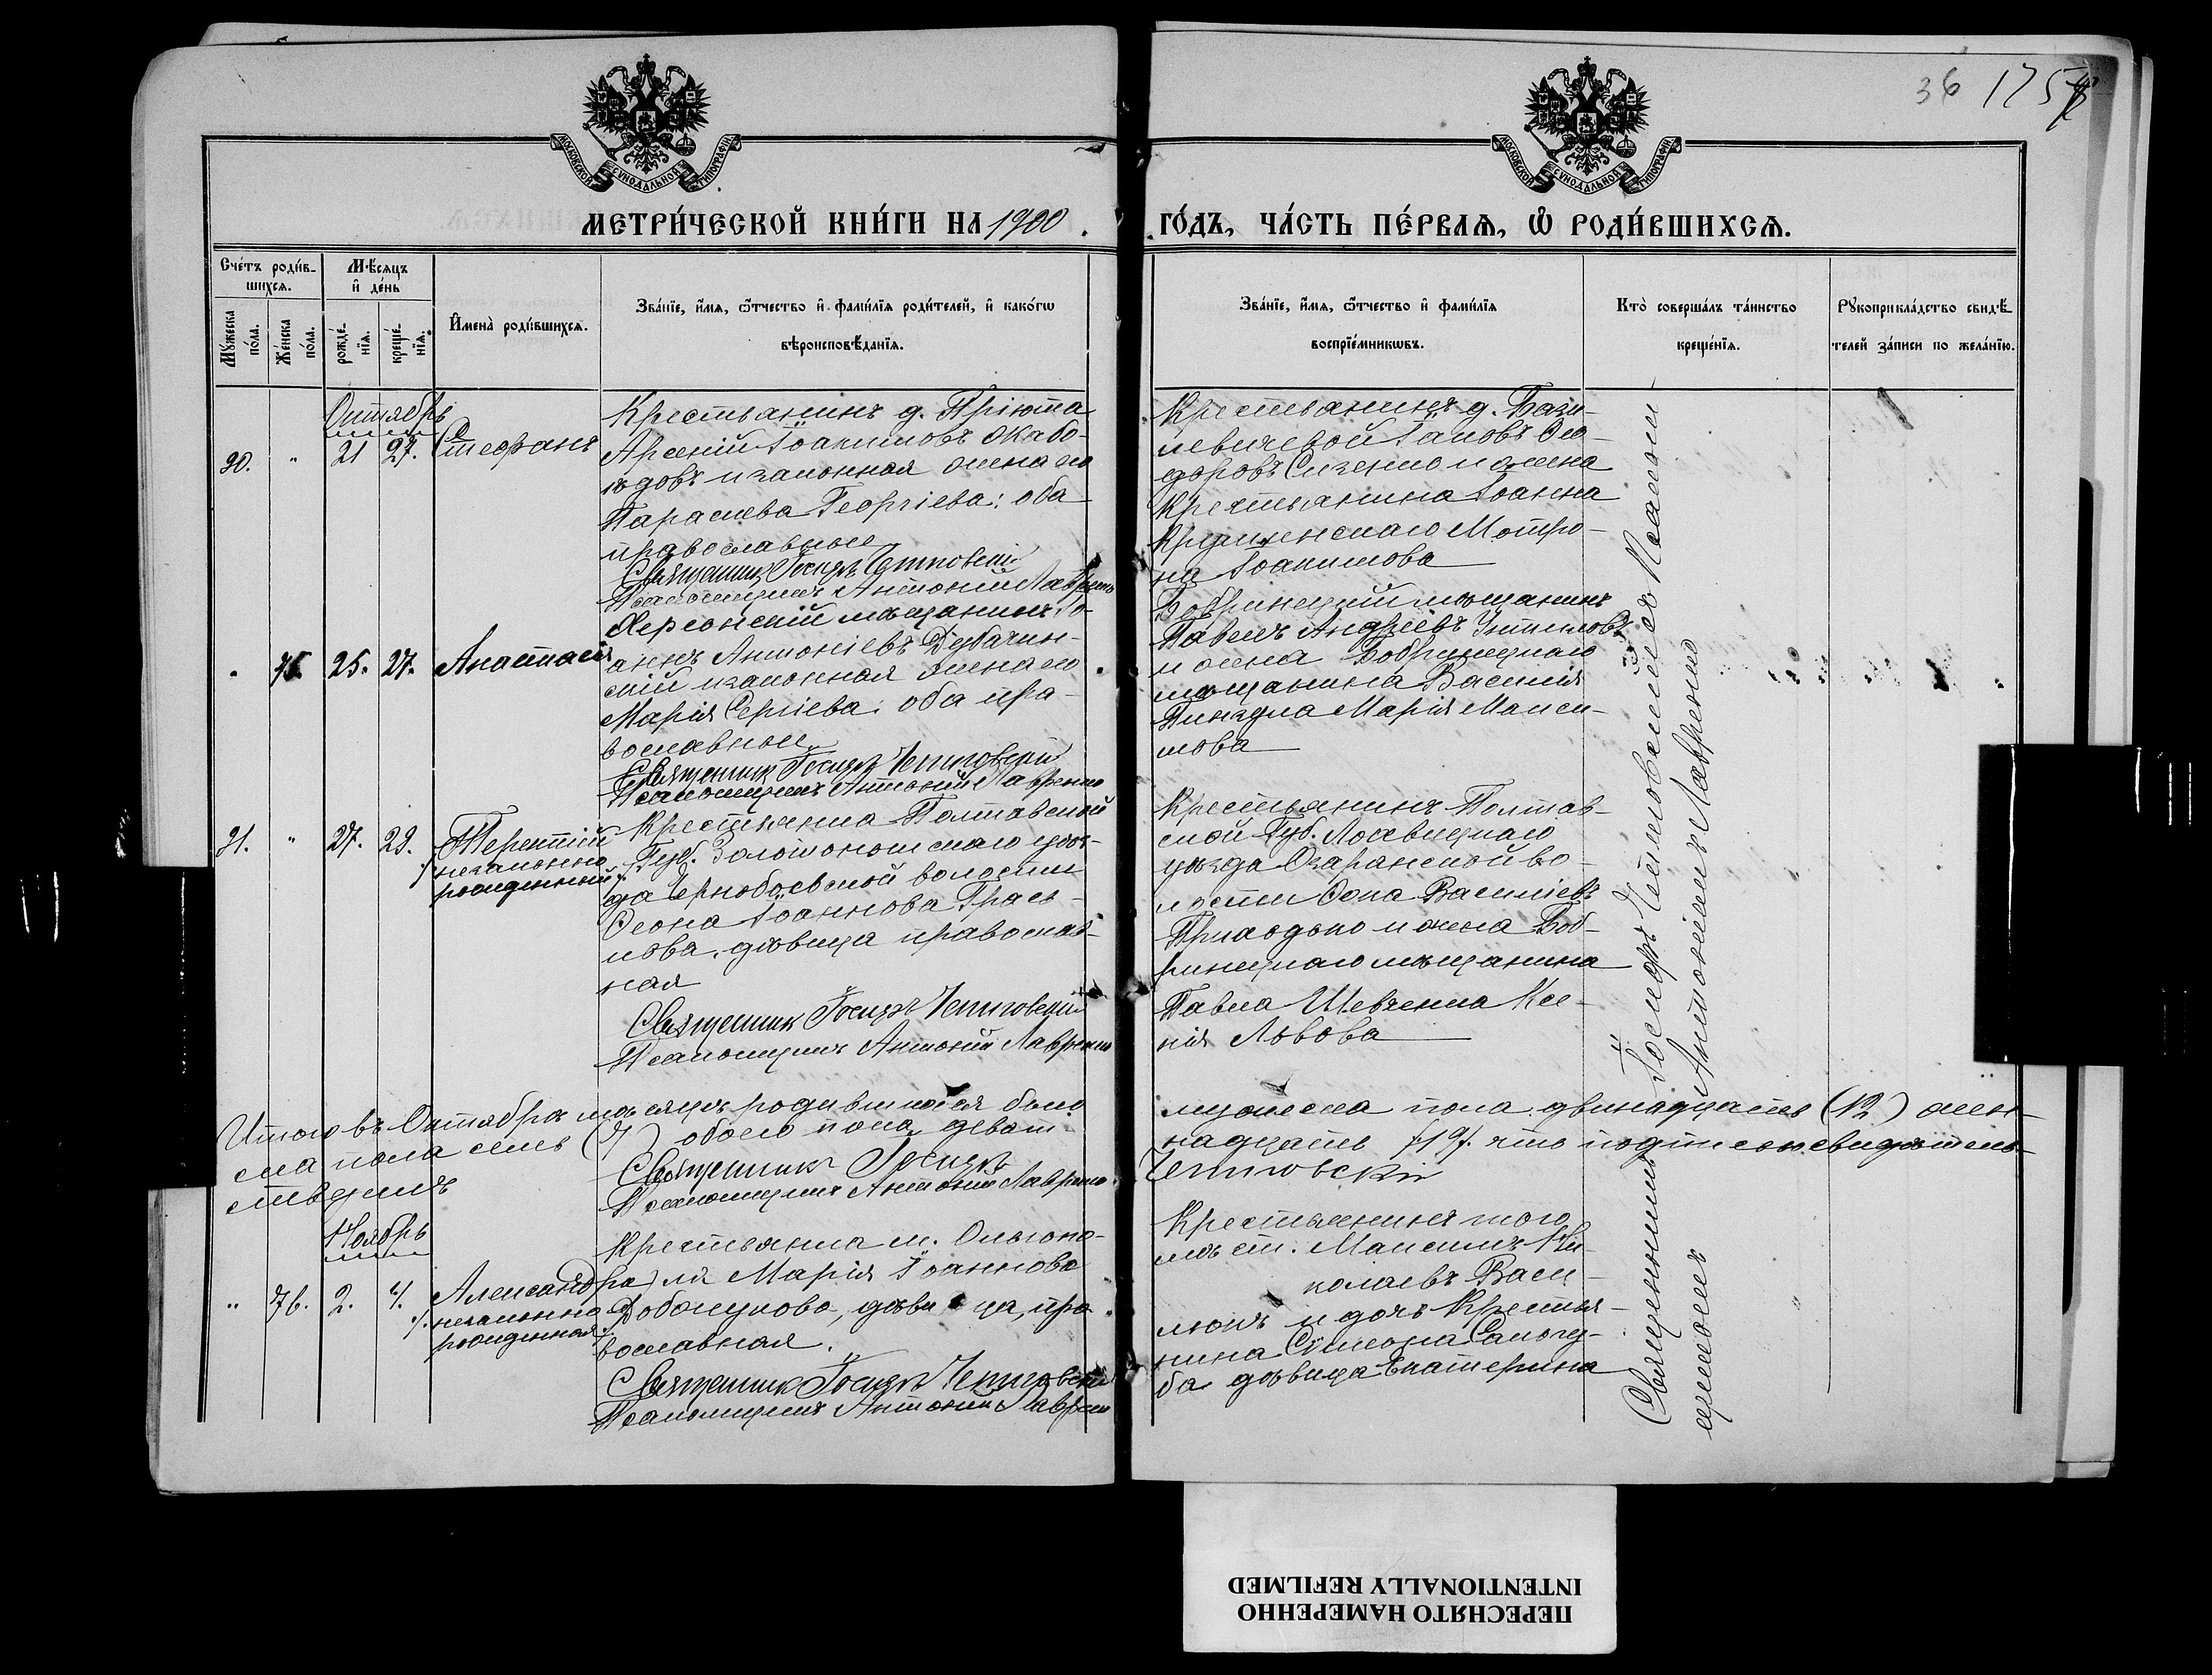 36 175
МОСКОВСКОЙ СУНОДАЛЬНОЙ ТИПОГРАФІИ
МОСКОВСКОЙ СУНОДАЛЬНОЙ ТИПОГРАФІИ
МЕТРИ́ЧЕСКОЙ КНИ́ГИ НА 1900
ГО́ДЪ, ЧА́СТЬ ПЕ́РВАѦ, Ѡ РОДИ́ВШИХСѦ.
Сче́тъ роди́в-
шихсѧ.
Мꙋ́жеска по́ла.
Же́нска по́ла.
Мѣ́сѧцъ
и҆ де́нь
рожде́-
нїѧ.
креще́-
нїѧ.
И҆мена̀ роди́вшихсѧ.
Зва́нїе, и҆́мѧ, ѻ҆́тчество и҆ фами́лїѧ роди́телей, и҆ како́гѡ
вѣроисповѣ́данїѧ.
Зва́нїе, и҆́мѧ, ѻ҆́тчество и҆ фами́лїѧ
воспрїе́мникѡвъ.
Кто̀ соверша́лъ та́инство
креще́нїѧ.
Рꙋкоприкла́дство свидѣ́-
телей за́писи по жела́нїю.
Октябрь
90. " 21 27. Стефанъ
Крестьянинъ д. Пріюта
Арсеній Іоакимовъ
и законная жена его
Параскева Георгіева: оба
православные
Священникъ Іосифъ
Псаломщикъ Антоній Лавренко
Крестьянинъ д. Бази-
левичевой Іаковъ Ѳео-
доровъ и жена
крестьянина Іоанна
Мотро-
на Іоакимова
" 75. 25. 27. Анастасія
Херсонскій мѣщанинъ Іо-
аннъ Антоніевъ Дубачин-
скій и законная жена его
Марія Сергіева: оба пра-
вославные
Священникъ Іосифъ
Псаломщикъ Антоній Лавренко
Бобринецкій мѣщанинъ
Павелъ Андреевъ
и жена Бобринецкаго
мѣщанина Василія
Марія Макси-
мова
91. " 27. 29. Терентій
незаконно
рожденный
Крестьянка Полтавской
Губ. Золотоношскаго уѣз-
да Чернобаевской волости
Іоаннова
дѣвица православ-
ная
Священникъ Іосифъ
Псаломщикъ Антоній Лавренко
Крестьянинъ Полтав-
ской Губ. Лохвицкаго
уѣзда во-
лости Ѳома Василіевъ
Приходько и жена Боб-
ринецкаго мѣщанина
Павла Шевченка Ксе-
нія Львова
Итого въ Октябрѣ мѣсяцѣ родившихся было
мужеска пола двинадцать (12) жен-
ска пола семь (7) обоего пола девят-
надцать /19/. что подписомъ свидѣтель-
ствуемъ
Священникъ Іосифъ
Псаломщикъ Антоній Лавренко
Ноябрь
" 76. 2. 4. Александра
незаконно
рожденная
Крестьянка м. Ольгопо-
ля Марія Іоаннова
дѣвица, пра-
вославная.
Священникъ Іосифъ
Псаломщикъ Антоній Лавренко
Крестьянинъ того
мѣст. Максимъ Ни-
колаевъ Васи-
люкъ и дочь крестья-
нина Симеона
дѣвица Екатерина
Священникъ Іосифъ съ Псалом-
щикомъ Антоніемъ Лавренко
ПЕРЕСНЯТО НАМЕРЕННО
INTENTIONALLY REFILMED